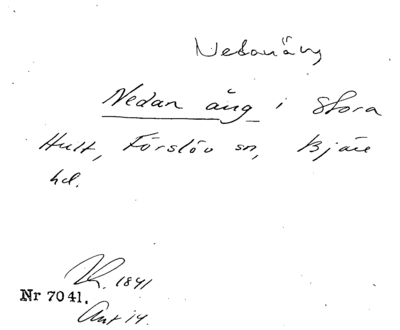 Nedanäng
Nedan äng i Stora
Hult, Förslöv sn, Bjäre
hd.
1841
Nr 7041.
Ant 14.